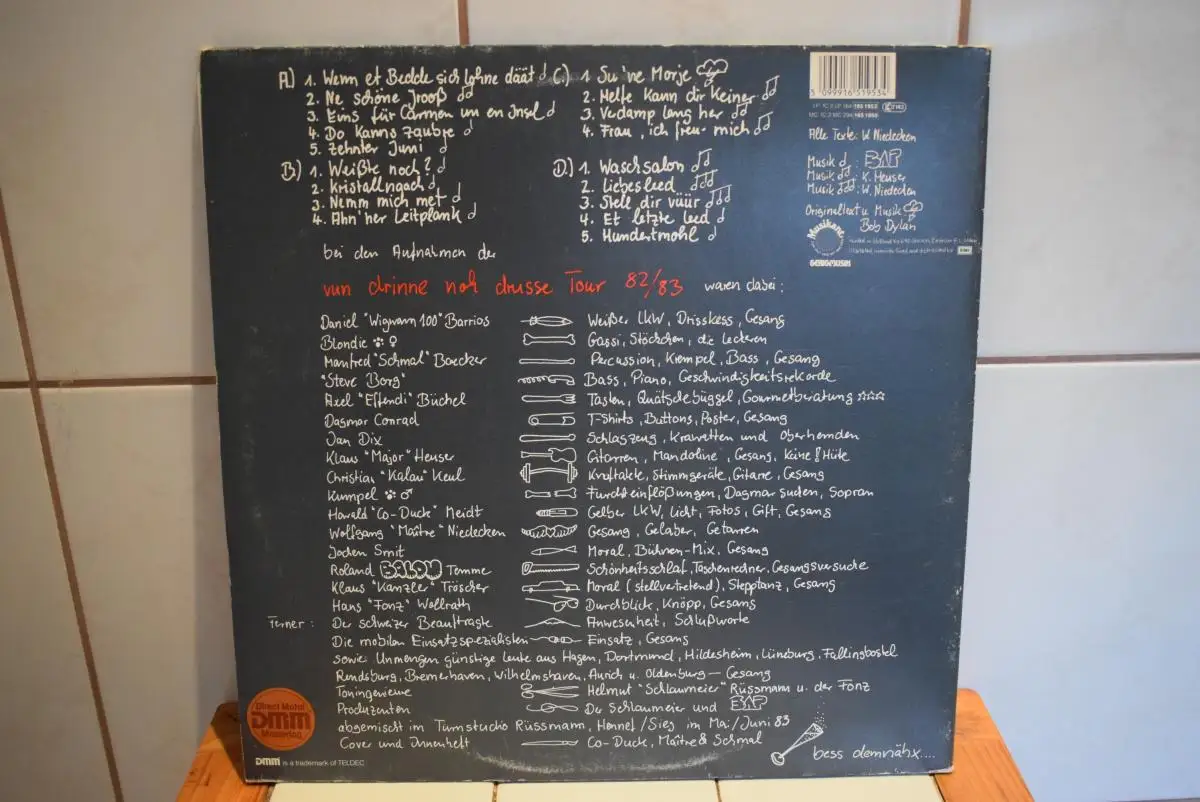 A) 1. Wenn et Bedde sich lohne däät
2. Ne schöne Jrooß
3. Eins für Carmen un en Insel
4. Do kanns zaubre
5. Zehnter Juni
B) 1. Weißte noch?
2. Kristallnaach
3. Nemm mich met
4. Ahn 'ner Leitplank
C) 1 Su 'ne Morje
2. Helfe kann dir keiner
3. Verdamp lang her
4. Frau, ich freu mich
D.) 1. Waschsalon
2. Liebesleed
3. Stell dir vüür
4. Et letzte Leed
5. Hundertmohl
5 099916 519534
Alle Texte: W. Niedecken
Musik : BAP
Musik : K. Heuser
Musik : W. Niedecken
Originaltext u. Musik
Bob Dylan
Musikant
bei den Aufnahmen der
vun drinne noh drusse Tour 82/83 waren dabei:
Daniel "Wigwam 100" Barrios Weißer LKW, Drisskess, Gesang
Blondie Gassi, Stöckchen, die Leckeren
Manfred "Schmal" Boecker Percussion, Krempel, Bass, Gesang
"Steve Borg" Bass, Piano, Geschwindigkeitsrekorde
Axel "Effendi" Büchel Tasten, Quätschebüggel, Gourmetberatung ☆☆☆
Dagmar Conrad T-Shirts, Buttons, Poster, Gesang
Jan Dix Schlagzeug, Krawatten und Oberhemden
Klaus "Major" Heuser Gitarren, Mandoline, Gesang, keine! Hüte
Christian "Kalau" Keul Kraftakte, Stimmgeräte, Gitarre, Gesang
Kumpel Furchteinflößungen, Dagmar suchen, Sopran
Harald "Co-Duck" Neidt Gelber LKW, Licht, Fotos, Gift, Gesang
Wolfgang "Maître" Niedecken Gesang, Gelaber, Getarren
Jochen Smit Moral, Bühnen-Mix, Gesang
Roland BALOU Temme Schönheitsschlaf, Taschenredner, Gesangsversuche
Klaus "Kanzler" Tröscher Moral (stellvertretend), Stepptanz, Gesang
Hans "Fonz" Wollrath Durchblick, Knöpp, Gesang
Ferner: Der schweizer Beauftragte Anwesenheit, Schlußworte
Die mobilen Einsatzspezialisten Einsatz, Gesang
sowie Unmengen günstige Leute aus Hagen, Dortmund, Hildesheim, Lüneburg, Fallingbostel
Rendsburg, Bremerhaven, Wilhelmshaven, Aurich u. Oldenburg — Gesang
Toningenieure Helmut "Schlaumeier" Rüssmann u. der Fonz
Produzenten Der Schlaumeier und BAP
abgemischt im Tumstudio Rüssmann, Hennef/Sieg im Mai/Juni 83
Cover und Innenheft Co-Duck, Maître & Schmal
bess demnähx....
Direct Metal
DMM
Mastering
DMM is a trademark of TELDEC